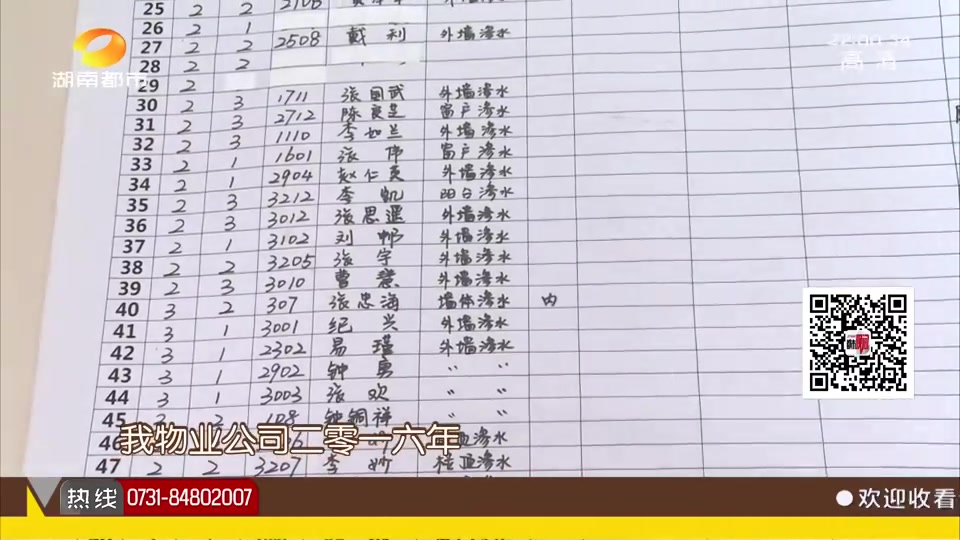 湖南都市
高清
25 2 2
26 2 1
27 2 2 2508 戴利 外墙渗水
28 2 2
29 2
30 2 3 1711 张国武 外墙渗水
31 2 3 2712 窗户渗水
32 2 3 1110 李如兰 外墙渗水
33 2 1 1601 张伟 窗户渗水
34 2 1 2904 赵仁英 外墙渗水
35 2 3 3212 李凯 阳台渗水
36 2 3 3012 张思遥 外墙渗水
37 2 1 3102 刘 外墙渗水
38 2 2 3205 张宇 外墙渗水
39 2 3 3010 曹慧 外墙渗水
40 3 2 307 张忠海 墙体渗水 内
41 3 1 3001 纪兴 外墙渗水
42 3 1 2302 易瑾 外墙渗水
43 3 1 2902 钟勇 〃 〃
44 3 1 3003 张欢 〃 〃
45 108 钟铜祥 〃 〃
46 渗水
47 2 2 3207 李妙 渗水
我物业公司二零一六年
热线 0731-84802007
欢迎收看